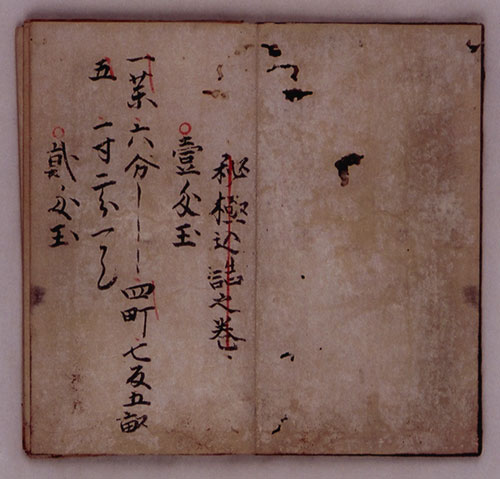 極込詰之巻
壹匁玉
一薬六分 四町七反五畝
五 一寸二分一
貳匁玉